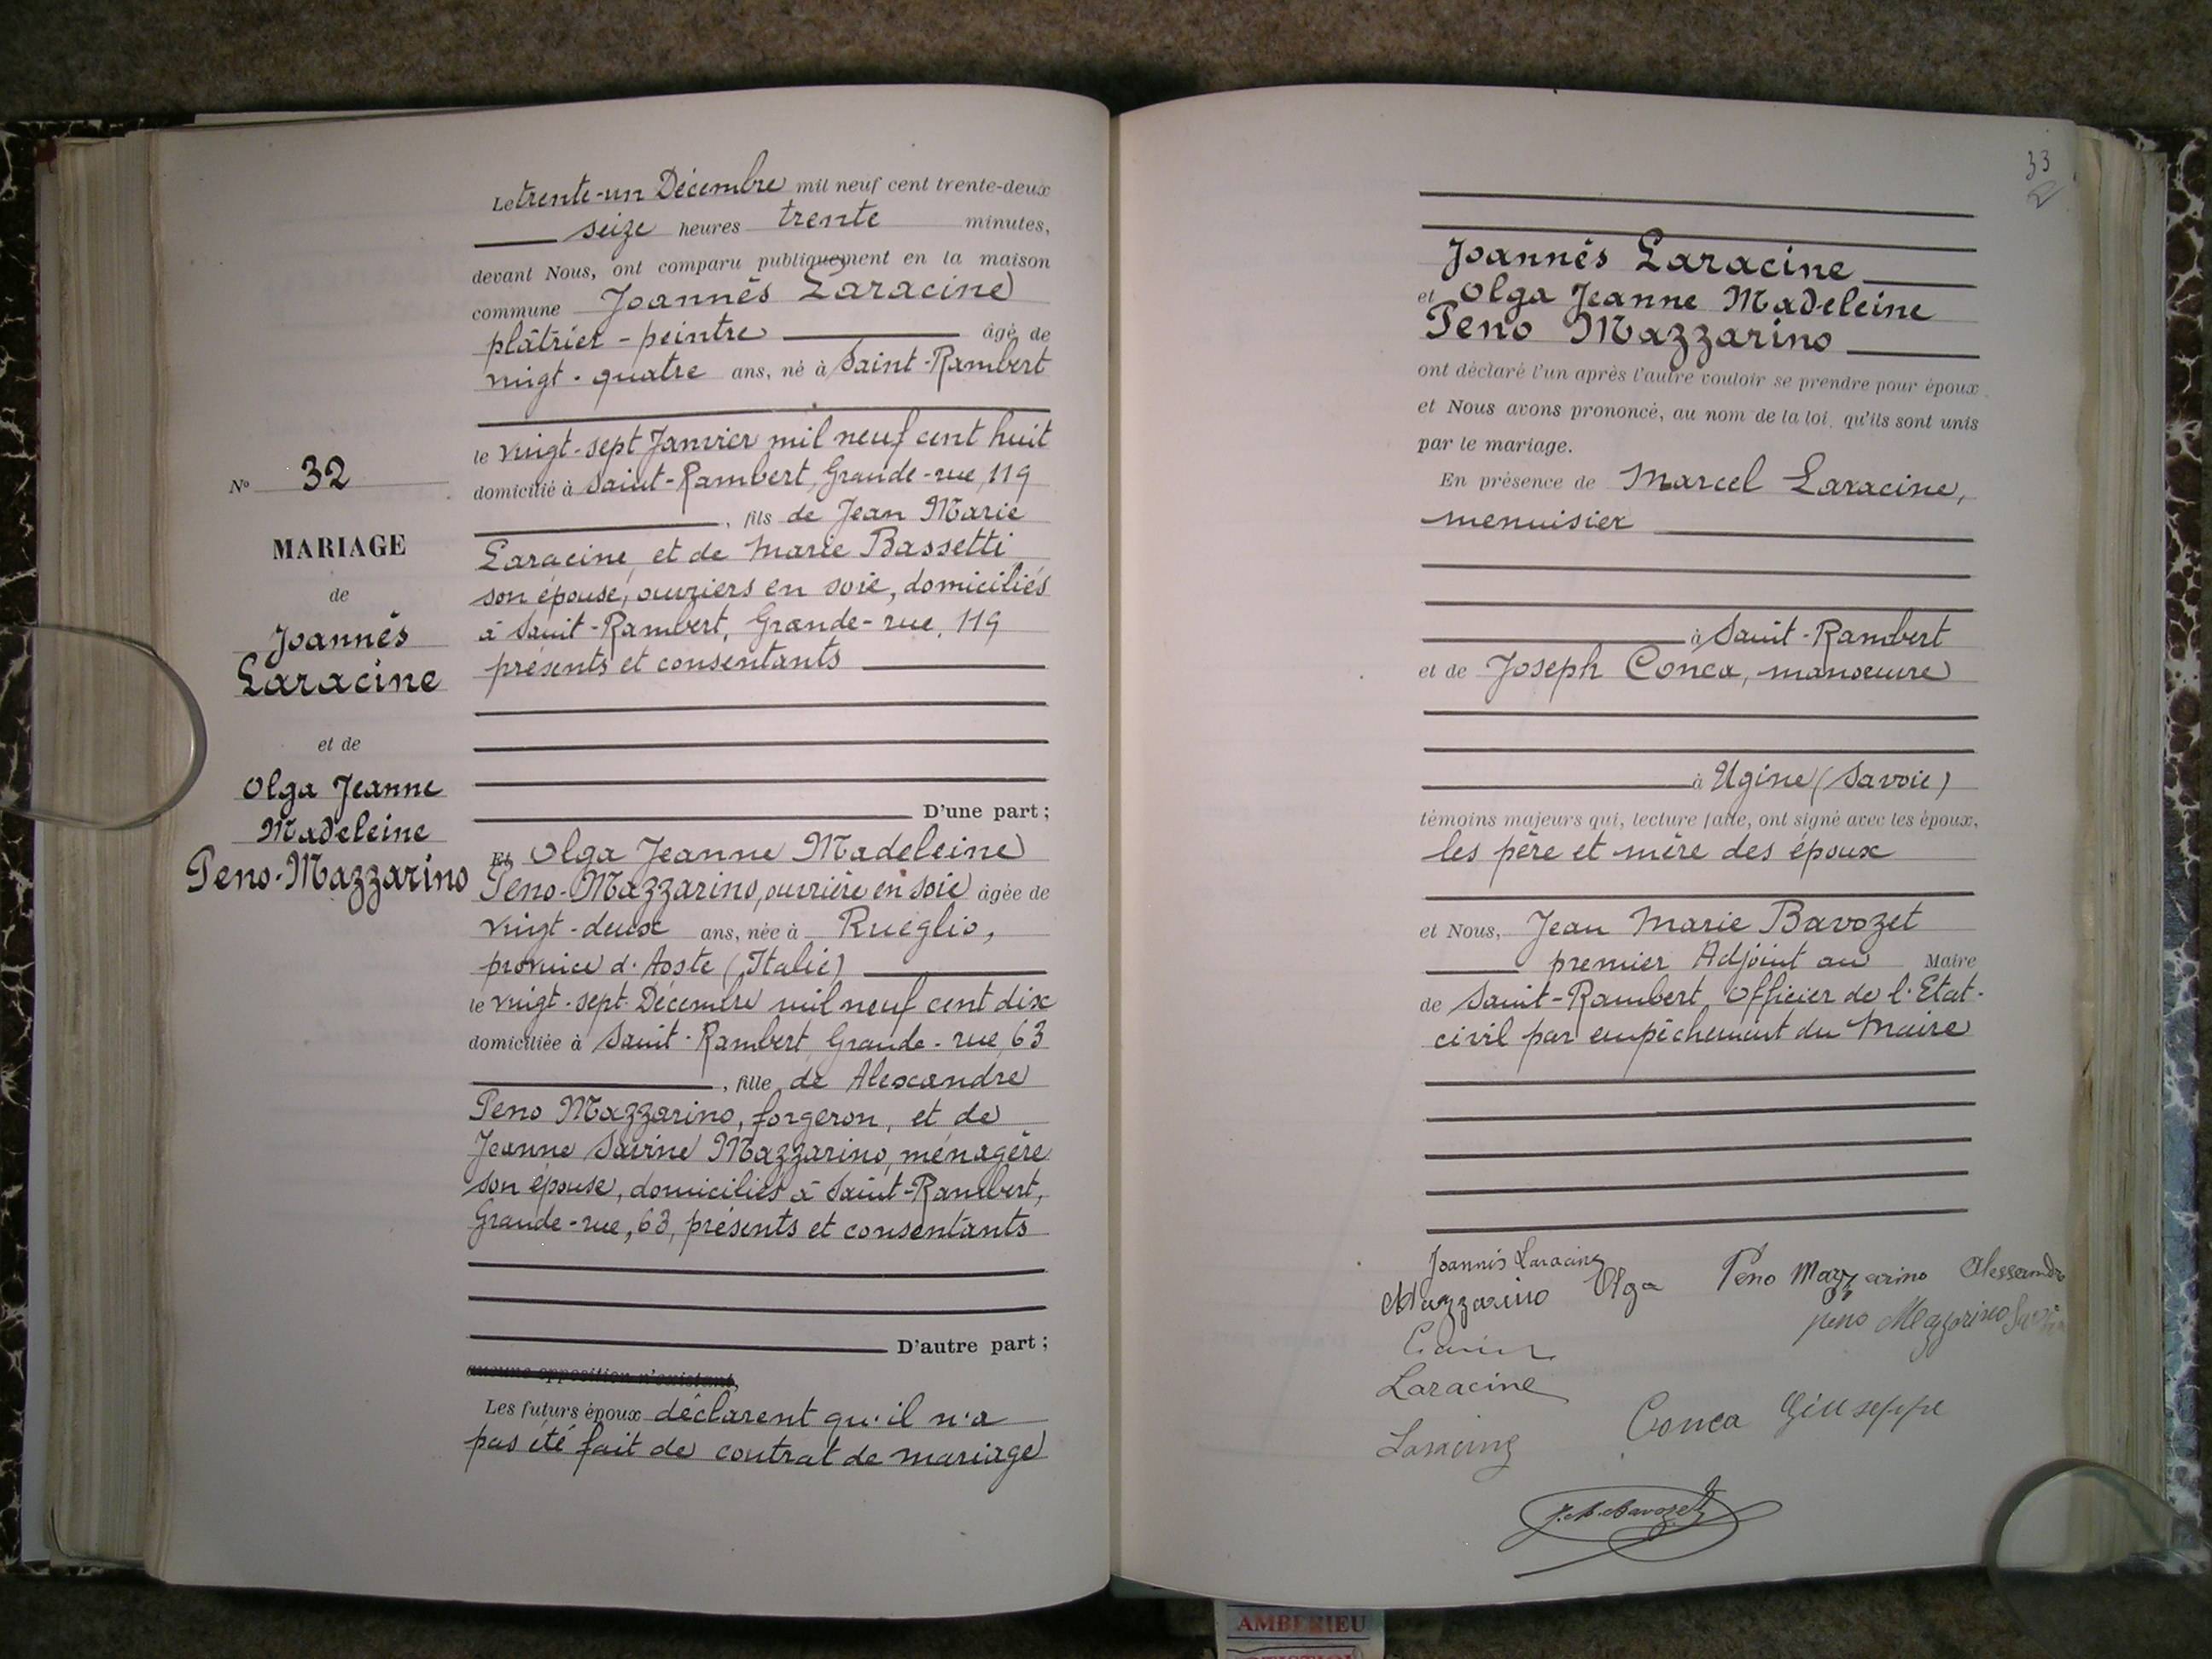 Le trente-un Décembre mil neuf cent trente-deux
seize heures trente minutes,
devant Nous, ont comparu publiquement en la maison
commune Joannés Laracine
plâtrier - peintre âgé de
vingt-quatre ans, né à Saint-Rambert
le vingt-sept Janvier mil neuf cent huit
domicilié à Saint-Rambert, Grande-rue, 119
, fils de Jean Marie
Laracine, et de Marie Bassetti
son épouse, ouvriers en soie, domiciliés
à Saint-Rambert, Grande-rue, 119
présents et consentants
D'une part ;
Et Olga Jeanne Madeleine
Peno-Mazzarino, ouvrière en soie âgée de
vingt-deux ans, née à Rueglio,
province d'Aoste (Italie)
le vingt-sept Décembre mil neuf cent dix
domiciliée à Saint-Rambert Grande-rue, 63
, fille de Alexandre
Peno Mazzarino, forgeron, et de
Jeanne Savine Mazzarino, ménagère
son épouse, domiciliés à Saint-Rambert,
Grande-rue, 63, présents et consentants
D'autre part ;
aucune opposition n'existant,
Les futurs époux déclarent qu'il n'a
pas été fait de contrat de mariage
N° 32
MARIAGE
de
Joannés
Laracine
et de
Olga Jeanne
Madeleine
Peno-Mazzarino
33
Joannés Laracine
et Olga Jeanne Madeleine
Peno Mazzarino
ont déclaré l'un après l'autre vouloir se prendre pour époux
et Nous avons prononcé, au nom de la loi, qu'ils sont unis
par le mariage.
En présence de Marcel Laracine,
menuisier
à Saint-Rambert
et de Joseph Conca, manoeuvre
à Ugine (Savoie)
témoins majeurs qui, lecture faite, ont signé avec les époux,
les père et mère des époux
et Nous, Jean Marie Bavozet
premier Adjoint au Maire
de Saint-Rambert, Officier de l'Etat-
civil par empêchement du Maire
Joannés Laracine
Mazzarino Olga Peno Mazzarino Alessandro
peno Mazzarino
Laracine
Laracine
Conca Giuseppe
J. M. Bavozet
AMBERIEU